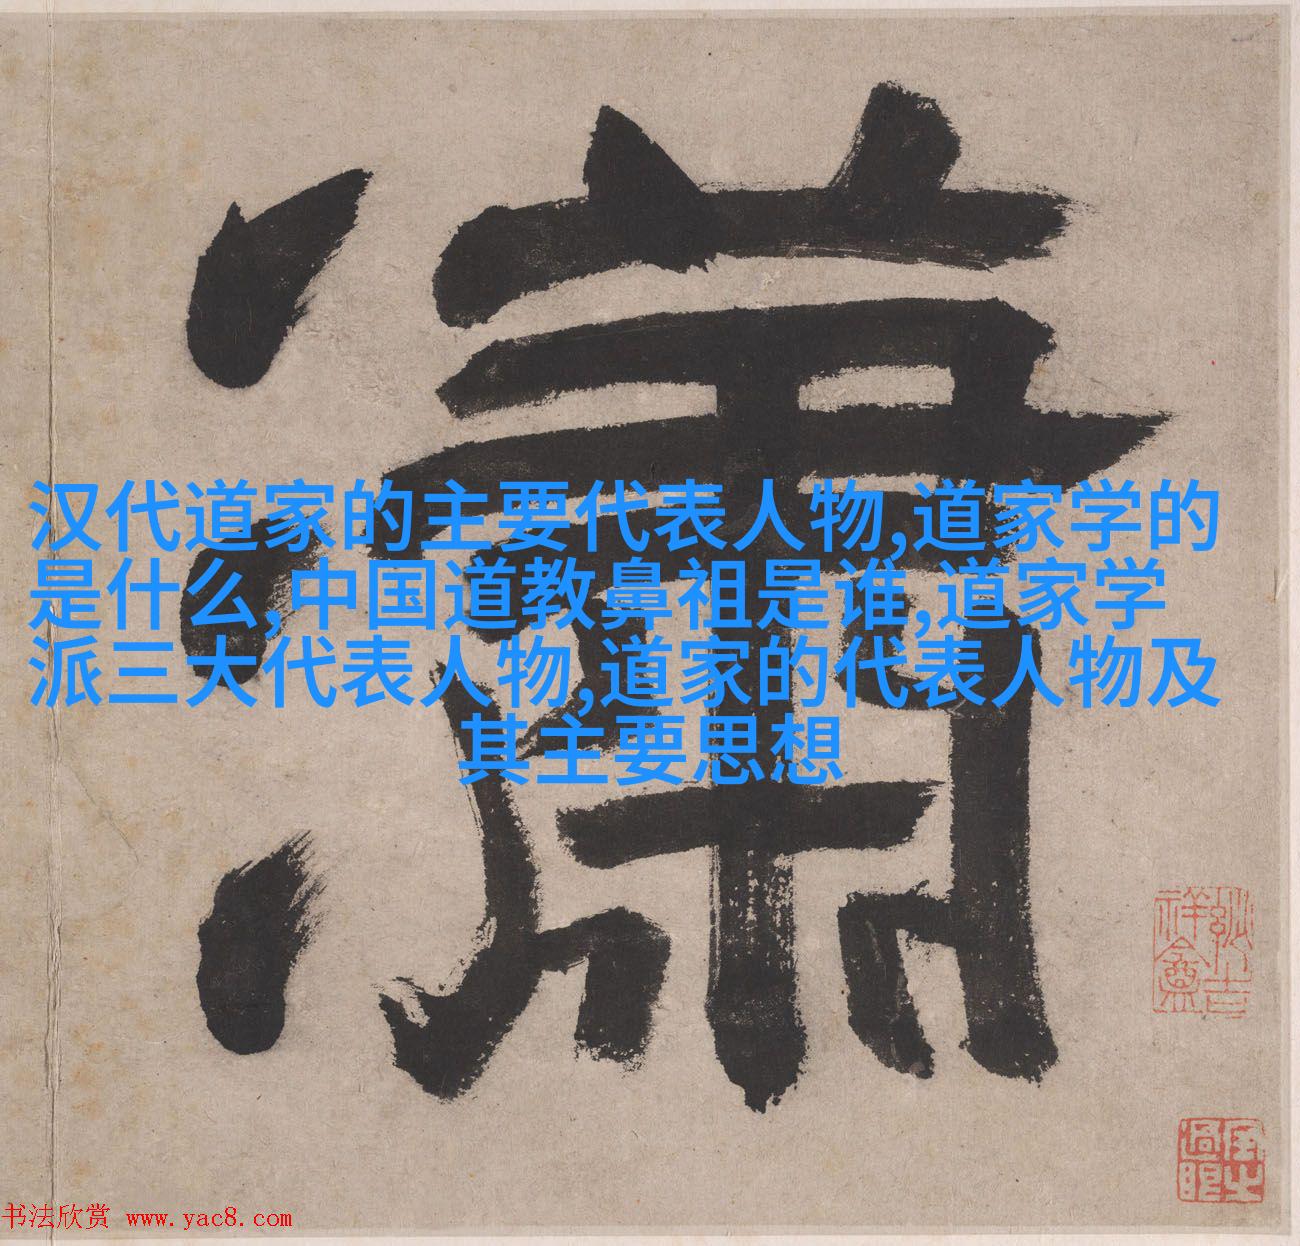 瀟
汉代道家的主要代表人物,道家学的
是什么,中国道教鼻祖是谁,道家学
派三大代表人物,道家的代表人物及
其主要思想
书法欣赏 www.yac8.com